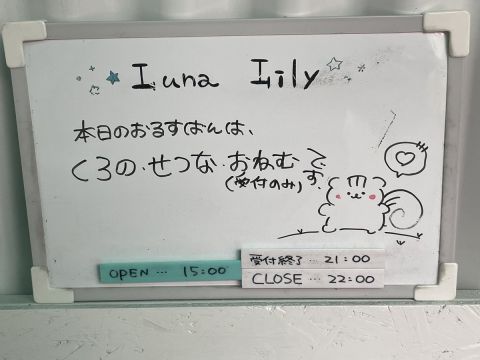 Luna Lily
本日のおるすばんは、
くろの・せつな・おねむです。
(受付のみ)
OPEN … 15:00
受付終了 … 21:00
CLOSE … 22:00